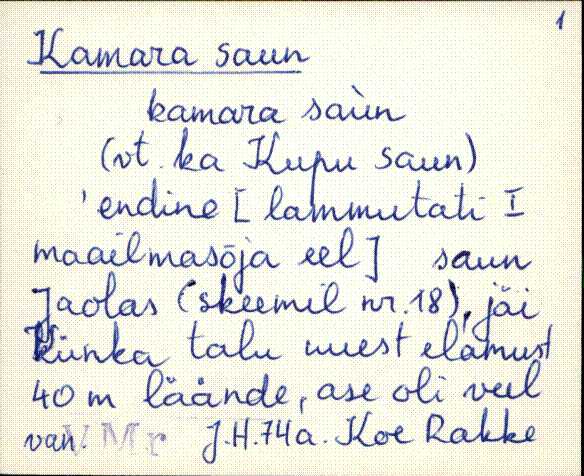 1
Kamara saun
kamara saùn
(vt. ka Kupu saun)
'endine [lammutati I
maailmasõja eel] saun
Jaolas (skeemil nr. 18), jäi
Künka talu uuest elamust
40 m läände, ase oli veel
van. VMr J.H. 74 a. Koe Rakke